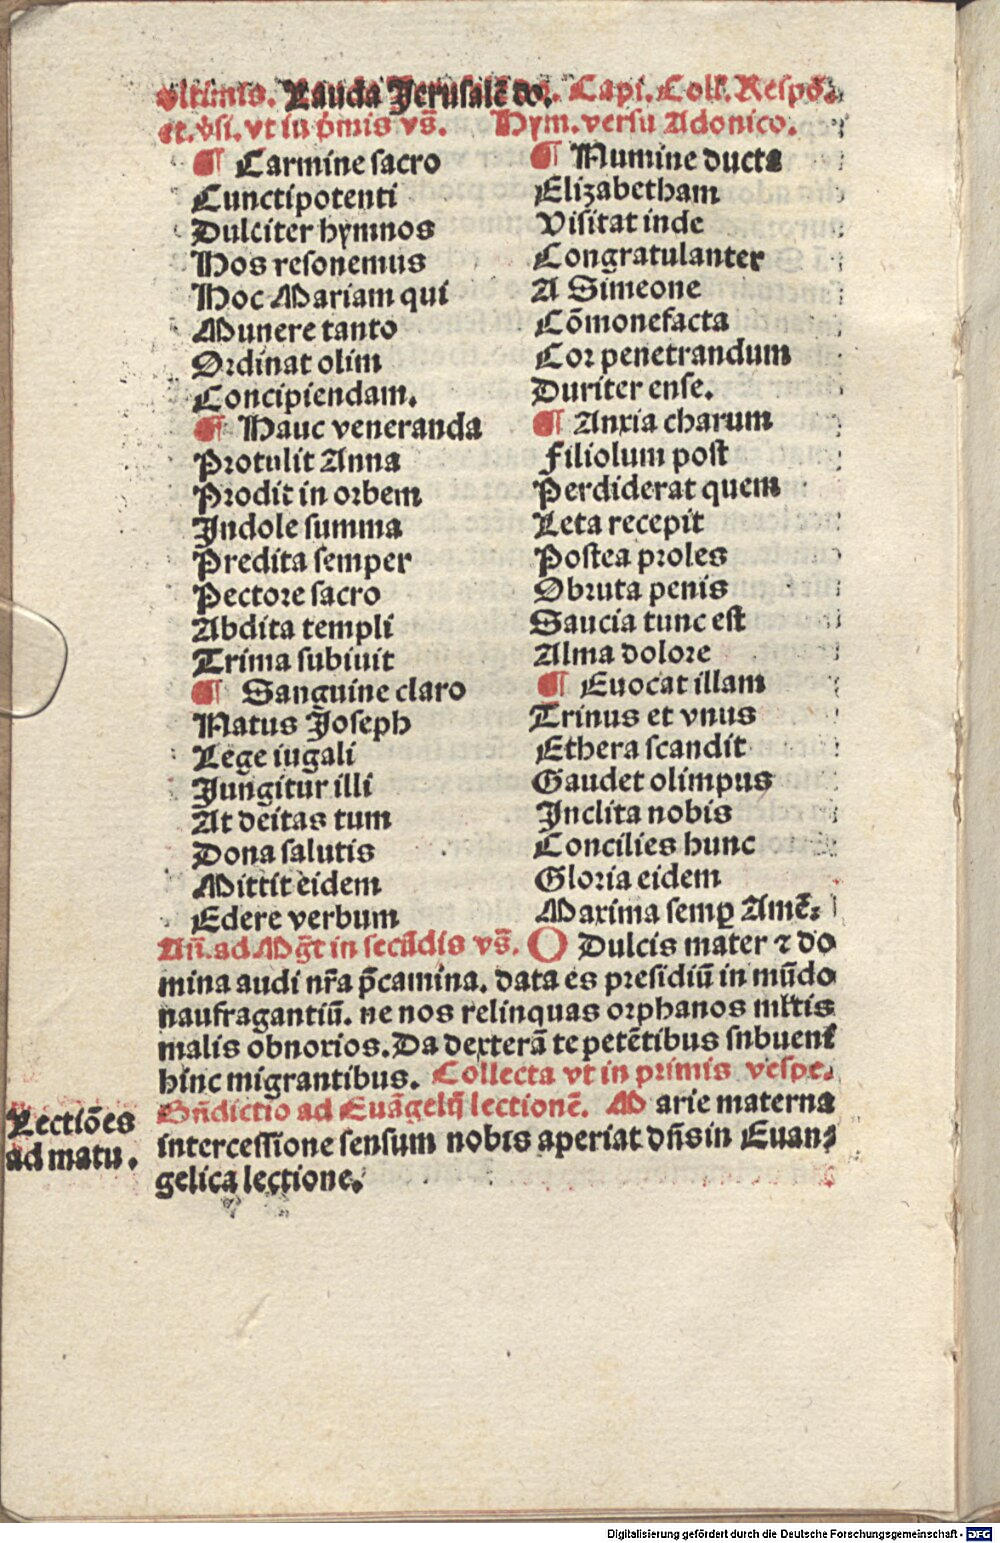 vltimis. Lauda Jerusalē do. Capi. Coll. Respō.
et. v̄si. vt in p̄mis vs̄. Hym. versu Adonico.
¶ Carmine sacro
Cunctipotenti
Dulciter hymnos
Hos resonemus
Hoc Mariam qui
Munere tanto
Ordinat olim
Concipiendam.
¶ Hauc veneranda
Protulit Anna
Prodit in orbem
Indole summa
Predita semper
Pectore sacro
Abdita templi
Trima subiuit
¶ Sanguine claro
Natus Joseph
Lege iugali
Jungitur illi
At deitas tum
Dona salutis
Mittit eidem
Edere verbum
¶ Numine ducta
Elizabetham
Visitat inde
Congratulanter
A Simeone
Cōmonefacta
Cor penetrandum
Duriter ense.
¶ Anxia charum
Filiolum post
Perdiderat quem
Leta recepit
Postea proles
Obruta penis
Saucia tunc est
Alma dolore
¶ Euocat illam
Trinus et vnus
Ethera scandit
Gaudet olimpus
Inclita nobis
Concilies hunc
Gloria eidem
Maxima semꝑ Amē.
Añ. ad Mḡt in secūdis vs̄. O Dulcis mater ⁊ do
mina audi nr̄a p̄camina. data es presidiū in mūdo
naufragantiū. ne nos relinquas orphanos ml̄tis
malis obnoxios. Da dexterā te petētibus subueni
hinc migrantibus. Collecta vt in primis vespe.
Bn̄dictio ad Euāgelij lectionē. Marie materna
intercessione sensum nobis aperiat dn̄s in Euan⸗
gelica lectione.
Lectiōes
ad matu.
Digitalisierung gefördert durch die Deutsche Forschungsgemeinschaft - DFG